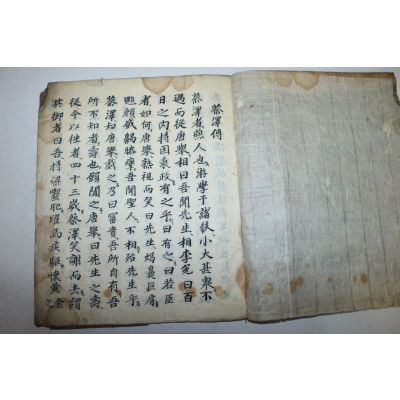 蔡澤傳
蔡澤者燕人也游學于諸侯小大甚衆不
遇而從唐舉相曰吾聞先生相李兌曰百
日之內持國秉政有之乎曰有之曰若臣
者如何唐舉熟視而笑曰先生鼻巨肩
魋顔蹙齃膝攣吾聞聖人不相殆先生乎
蔡澤知唐舉戲之乃曰富貴吾所自有吾
所不知者壽也願聞之唐舉曰先生之壽
從今以往者四十三歲蔡澤笑謝而去謂
其御者曰吾持梁齧肥躍馬疾驅懷黃金之